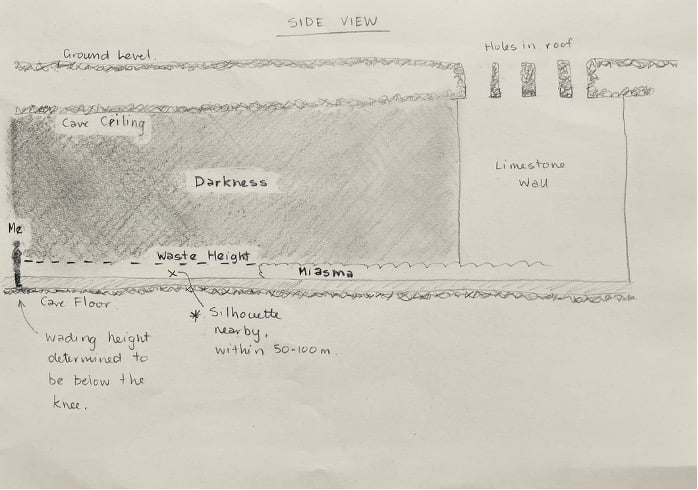 SIDE VIEW
Ground Level.
Holes in roof
Cave Ceiling
Limestone
Wall
Darkness
Me
Waste Height
x
Miasma
Cave Floor
* Silhouette
nearby,
within 50-100m.
Wading height
determined to
be below the
knee.